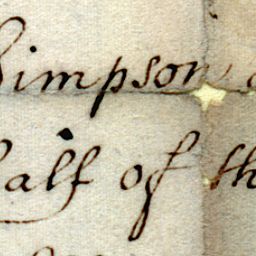 Simpson
half of th